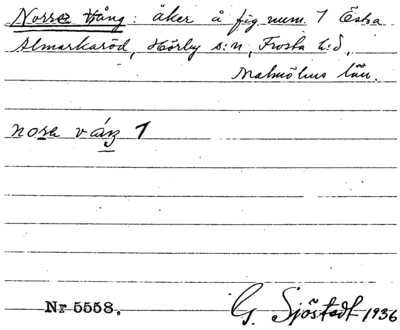 Norre Vång: åker å fig. num. 1 Östra
Almarkaröd, Hörby s:n, Frosta h:d,
Malmöhus län.
nose váŋ 1
Nr 5558. G. Sjöstedt 1936